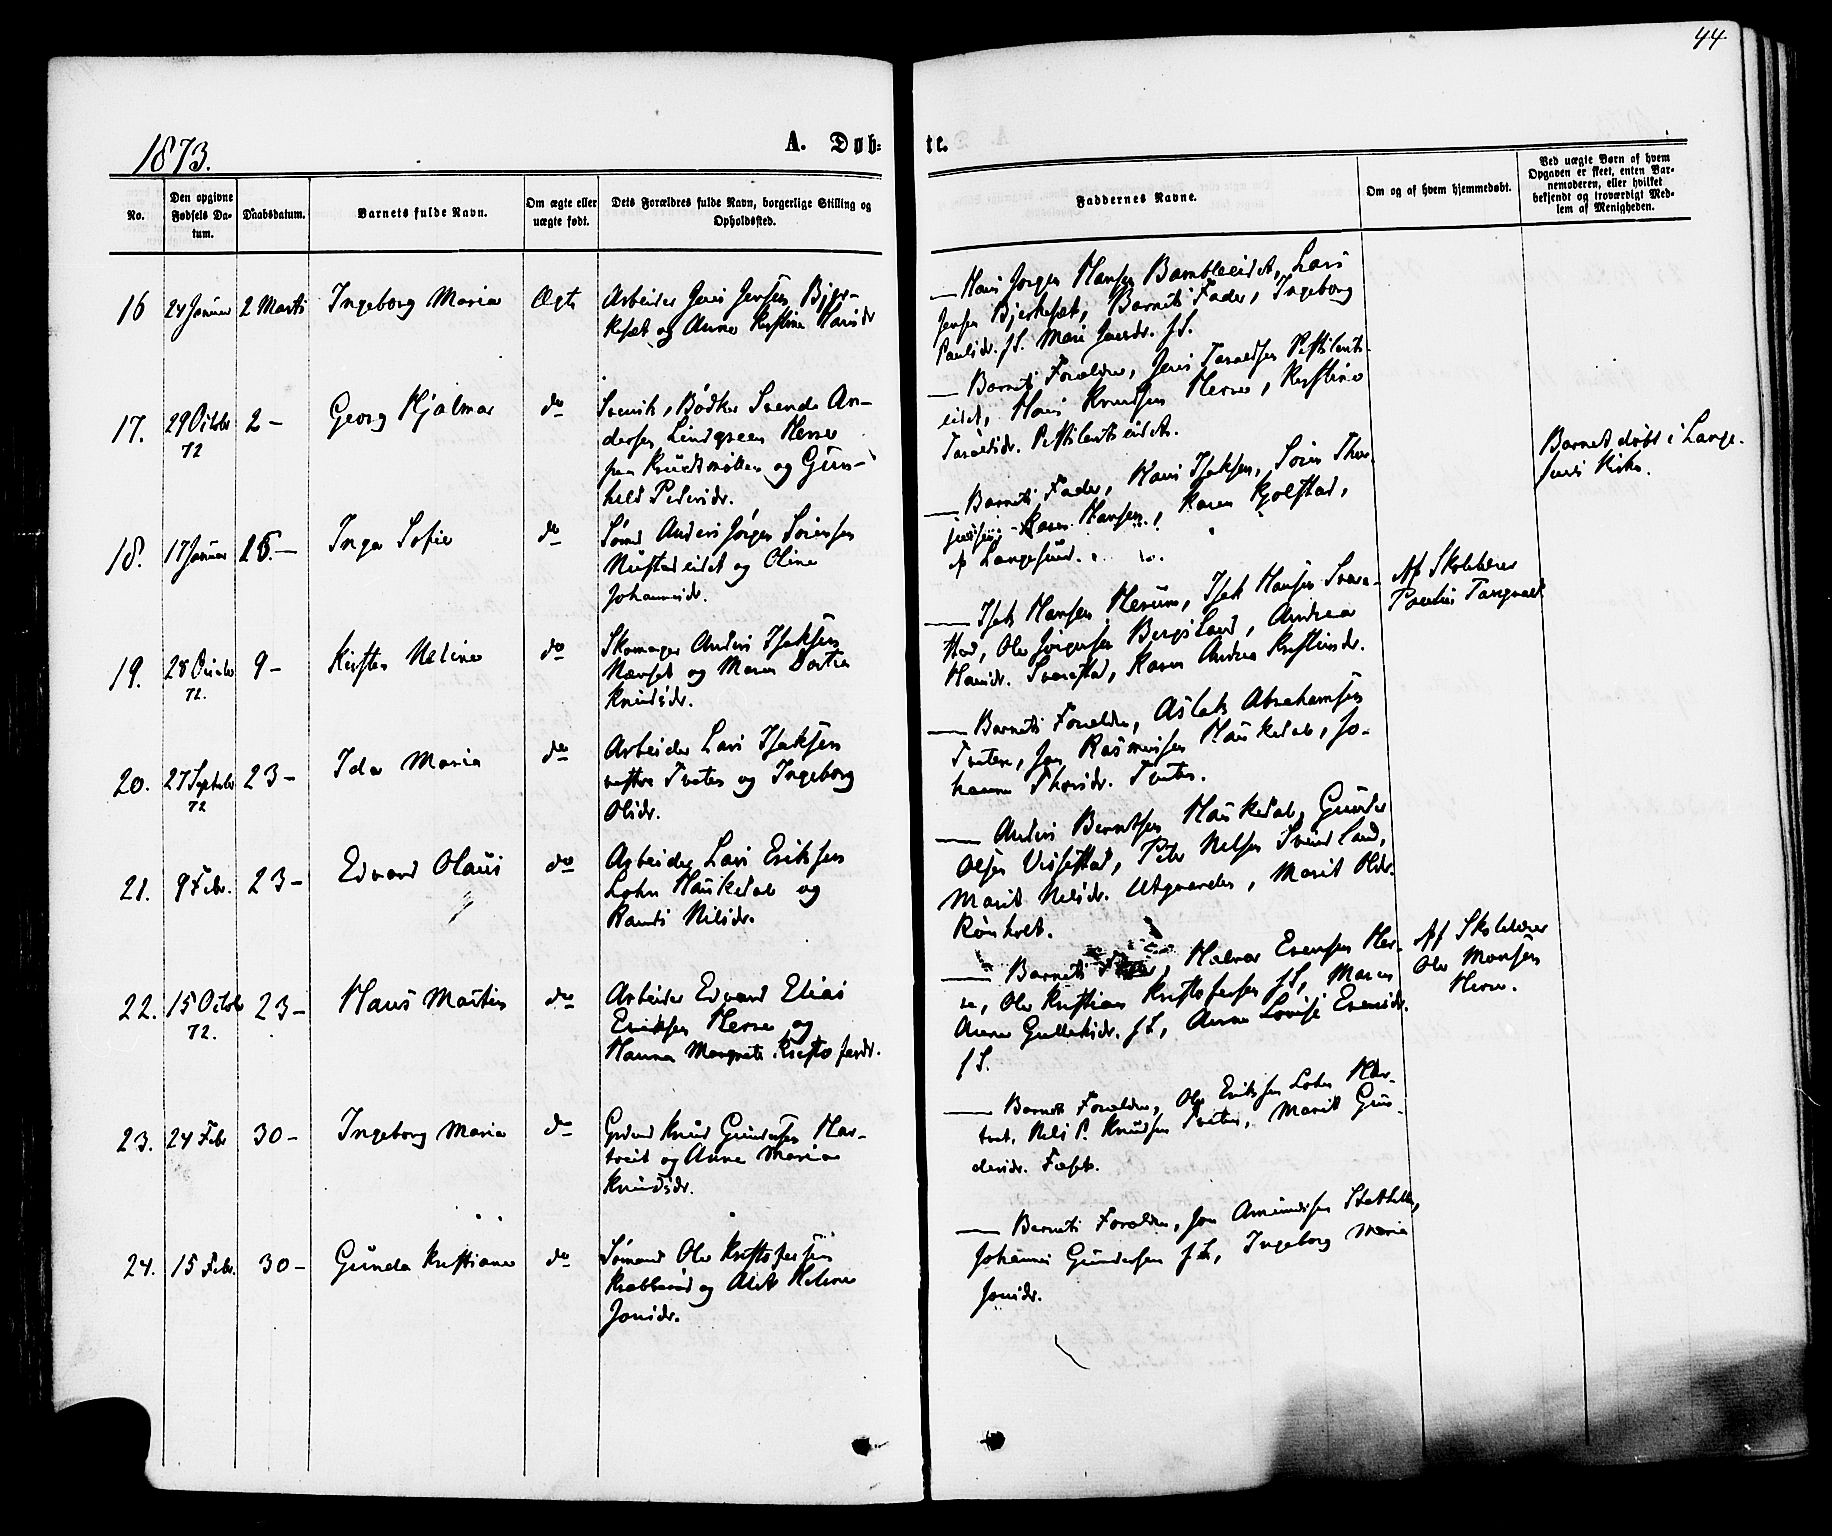 44
1873.
A. Døb-
te.
No.
Den opgivne
Fødsels Da-
tum.
Daabsdatum.
Barnets fulde Navn.
Om ægte eller
uægte født.
Dets Forældres fulde Navn, borgerlige Stilling og
Opholdssted.
Faddernes Navne.
Om og af hvem hjemmedøbt.
Ved uægte Børn af hvem
Opgaven er skeet, enten Bar-
nemoderen, eller hvilket
bekjendt og troværdigt Med-
lem af Menigheden.
16
24 Januar
2 Marts
Ingeborg Maria
Ægte
Arbeider Jens Jensen Bjer-
keset og Anne Kirstine Larsdr
— Hans Jørgen Hansen Bambleeidet, Lars
Jensen Bjerkeset, Barnets Fader, Ingeborg
Paulsdr. f S.
17.
29 Octobr
72
2 –
Georg Hjalmar
do
Svensk, Bødker Svend An-
dersen Lindgreen Herre
paa og Gun-
hild Pedersdr.
— Barnets Forældre, Jens Taraldsen Pestilents-
eidet, Hans Knudsen Herre, Kirstine
Taraldsdr. Pestilentseidet.
18.
17 Januar
16. –
Inga Sofie
do
Sømd Anders Jørgen Sørensen
Nustadeidet og Oline
Johannesdr.
— Barnets Fader, Hans Isaksen, Søren
Karen Hansen, Karen
af Langesund.
Barnet døbt i Lange-
sunds Kirke.
19.
28 Octobr
72.
9 –
Kirsten Neline
do
Skomager Anders Isaksen
Næset og Maren Dortea
Knudsdr.
— Isak Hansen Herum, Isak Hansen Svars-
tad, Ole Jørgensen Bergsland, Andrea
Hansdr. Svarstad, Karen Andrea Kristensdr.
Af Skolelærer
Tangvald
20.
27 Septembr
72
23 –
Ida Maria
do
Arbeider Lars Isaksen
vestre Tveten og Ingeborg
Olsdr.
— Barnets Forældre, Aslak Abrahamsen
Tveten, Jon Rasmussen Haukedal, Jo-
hanne Thorsdr. Tveten.
21.
9 Febr.
23 –
Edvard Olaus
do
Arbeider Lars Eriksen
Lohn Haukedal og
Randi Nilsdr.
— Anders Berntsen Haukedal, Gunder
Olsen Vissestad, Peder Nelsen Svindland,
Marit Nilsdr. Utgaarden, Marit Oldr.
Rønholt.
22.
15 Octobr
72.
23 –
Hans Martin
do
Arbeider Edvard Elias
Eriksen Herre og
Hanna Margrete Kristofersdr.
— Barnets Fader, Halvor Evensen Her-
re, Ole Kristian Kristofersen f S, Maren
Anne Gulleksdr. f S, Anne Lovise Evensdr.
f S.
Af Skolelærer
Ole Monsen
Herre.
23.
24 Febr
30 –
Ingeborg Maria
do
Grdmd Knud Gundersen Har-
tveit og Anne Maria
Knudsdr.
— Barnets Forældre, Ole Eriksen Lohn Har-
tvet, Nils P. Knudsen Tveten, Marit Gun-
dersdr.
24.
15 Febr.
30 –
Gunda Kristiane
do
Sømand Ole Kristofersen
Krabberød og Alet Helene
Jonsdr.
— Barnets Forældre, Jon Amundsen Stathelle,
Johannes Gundersen f S, Ingeborg Maria
Jonsdr.